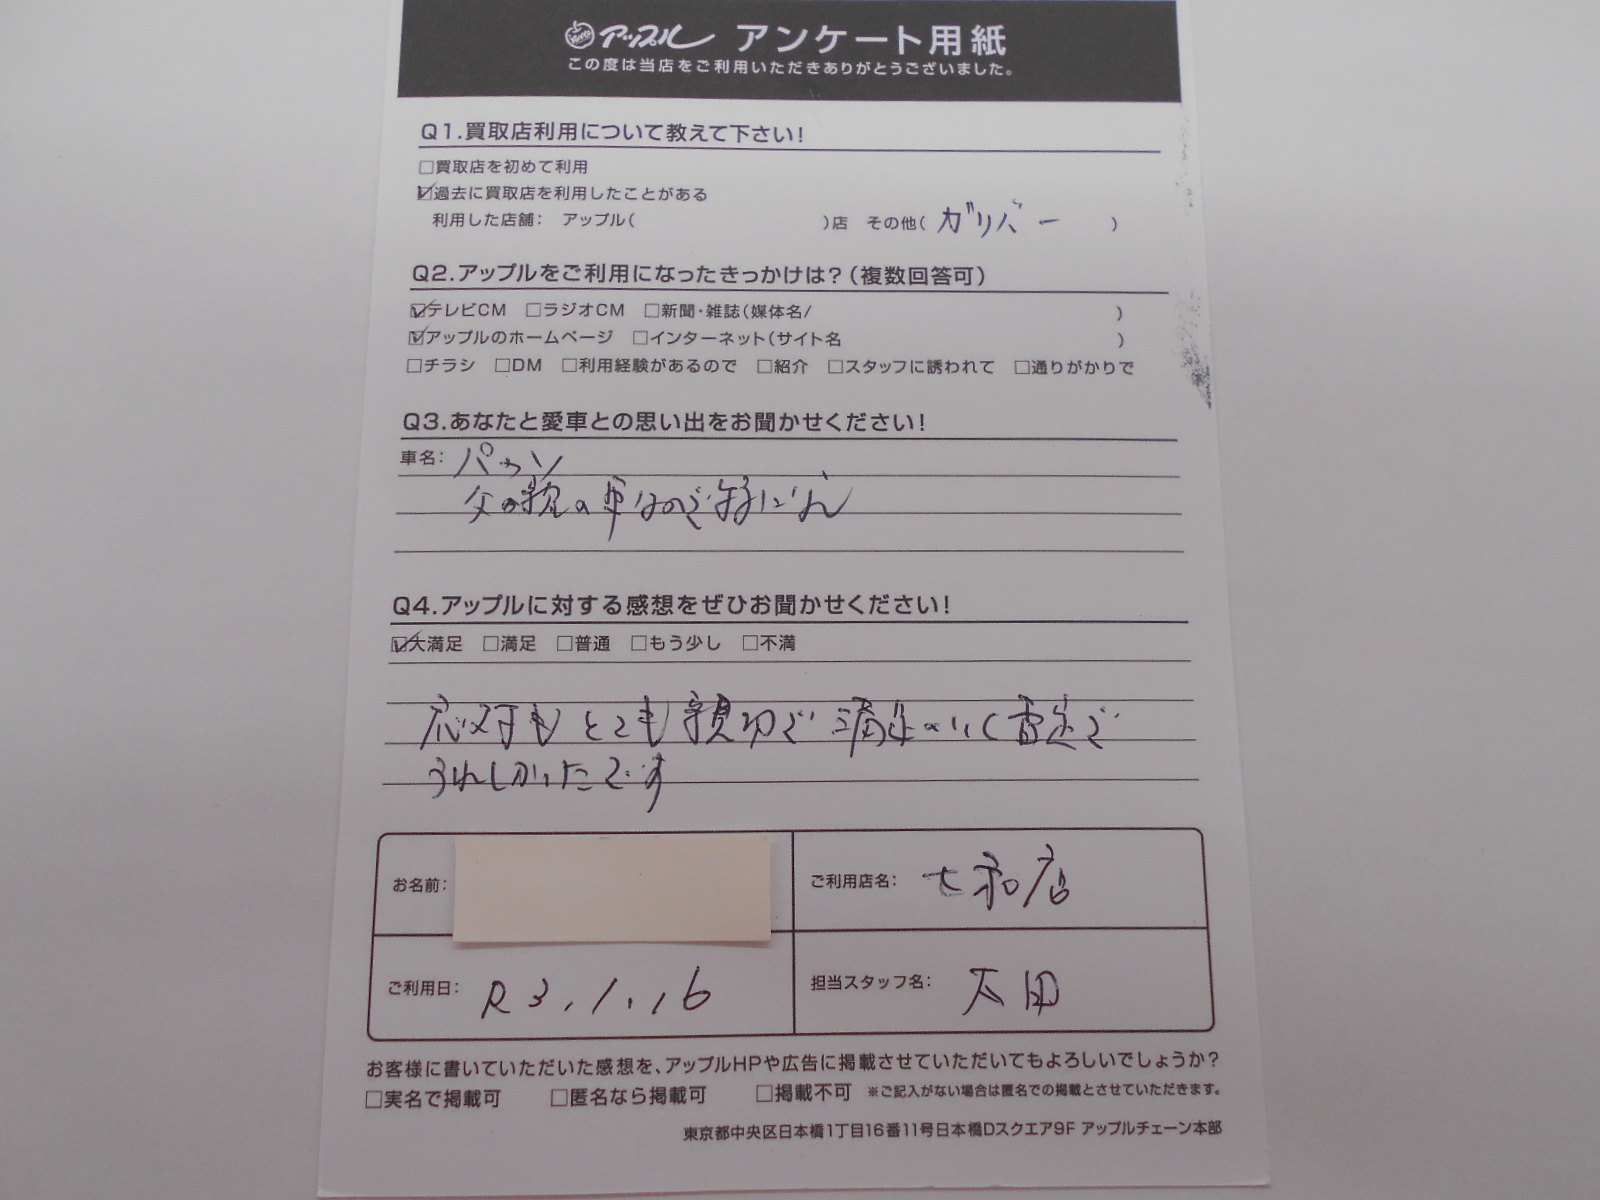 アップル アンケート用紙
この度は当店をご利用いただきありがとうございました。
Q1.買取店利用について教えて下さい!
□買取店を初めて利用
☑過去に買取店を利用したことがある
利用した店舗: アップル( )店 その他( ガリバー )
Q2.アップルをご利用になったきっかけは?(複数回答可)
☑テレビCM □ラジオCM □新聞・雑誌(媒体名/ )
☑アップルのホームページ □インターネット(サイト名 )
□チラシ □DM □利用経験があるので □紹介 □スタッフに誘われて □通りがかりで
Q3.あなたと愛車との思い出をお聞かせください!
車名: パッソ
父の親の車なので特になし
Q4.アップルに対する感想をぜひお聞かせください!
☑大満足 □満足 □普通 □もう少し □不満
応対もとても親切で満足のいく査定で
うれしかったです
お名前:
ご利用店名: 七和店
ご利用日: R3.1.16
担当スタッフ名: 太田
お客様に書いていただいた感想を、アップルHPや広告に掲載させていただいてもよろしいでしょうか?
□実名で掲載可 □匿名なら掲載可 □掲載不可 ※ご記入がない場合は匿名での掲載とさせていただきます。
東京都中央区日本橋1丁目16番11号日本橋Dスクエア9F アップルチェーン本部